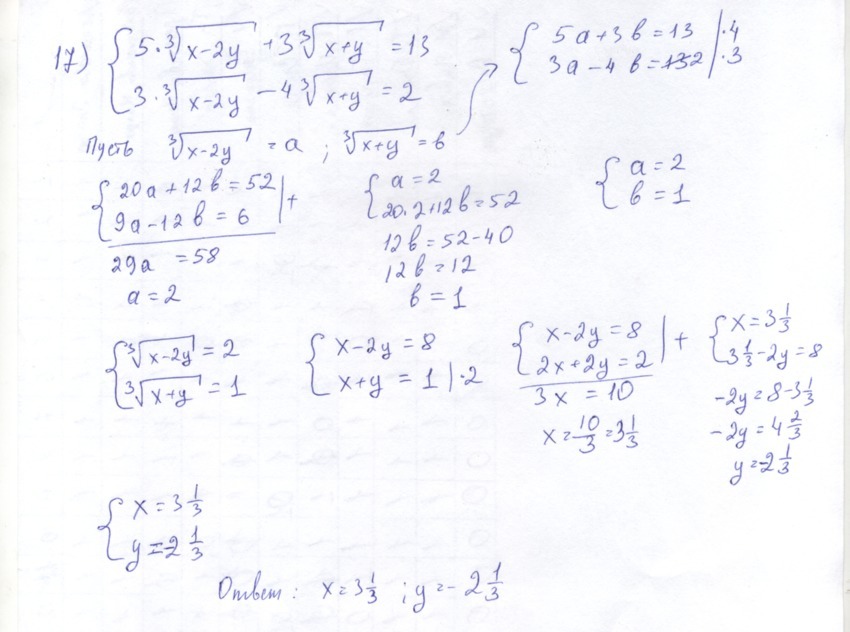 17) { 5·∛(x-2y) + 3∛(x+y) = 13
3·∛(x-2y) - 4∛(x+y) = 2
Пусть ∛(x-2y) = a ; ∛(x+y) = b
{ 5a + 3b = 13 | ·4
3a - 4b = 2 | ·3
{ 20a + 12b = 52 | +
9a - 12b = 6
29a = 58
a = 2
{ a = 2
20·2+12b = 52
12b = 52 - 40
12b = 12
b = 1
{ a = 2
b = 1
{ ∛(x-2y) = 2
∛(x+y) = 1
{ x - 2y = 8
x + y = 1 | ·2
{ x - 2y = 8 | +
2x + 2y = 2
3x = 10
x = 10/3 = 3 1/3
{ x = 3 1/3
3 1/3 - 2y = 8
-2y = 8 - 3 1/3
-2y = 4 2/3
y = -2 1/3
{ x = 3 1/3
y = -2 1/3
Ответ: x = 3 1/3 ; y = - 2 1/3